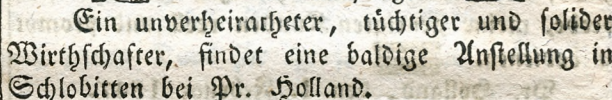 Ein unverheiratheter, tüchtiger und solider
Wirthschafter, findet eine baldige Anstellung in
Schlobitten bei Pr. Holland.